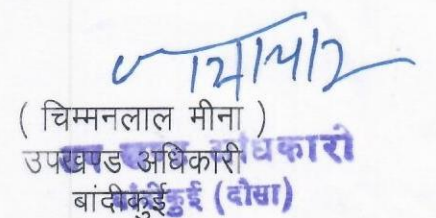 ( चिम्मनलाल मीना )
उपखण्ड अधिकारी
बांदीकुई
उप खण्ड अधिकारी
बांदीकुई (दौसा)